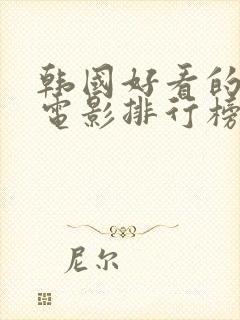 韩国好看的
電影排行榜
尼尔